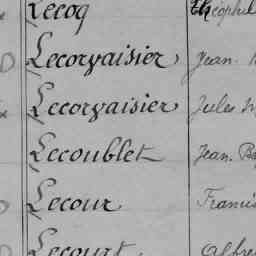 Lecoq Théophil
Lecorvaisier Jean.
Lecorvaisier Jules
Lecoublet Jean. B
Lecour Franci
Lecourt Alfre